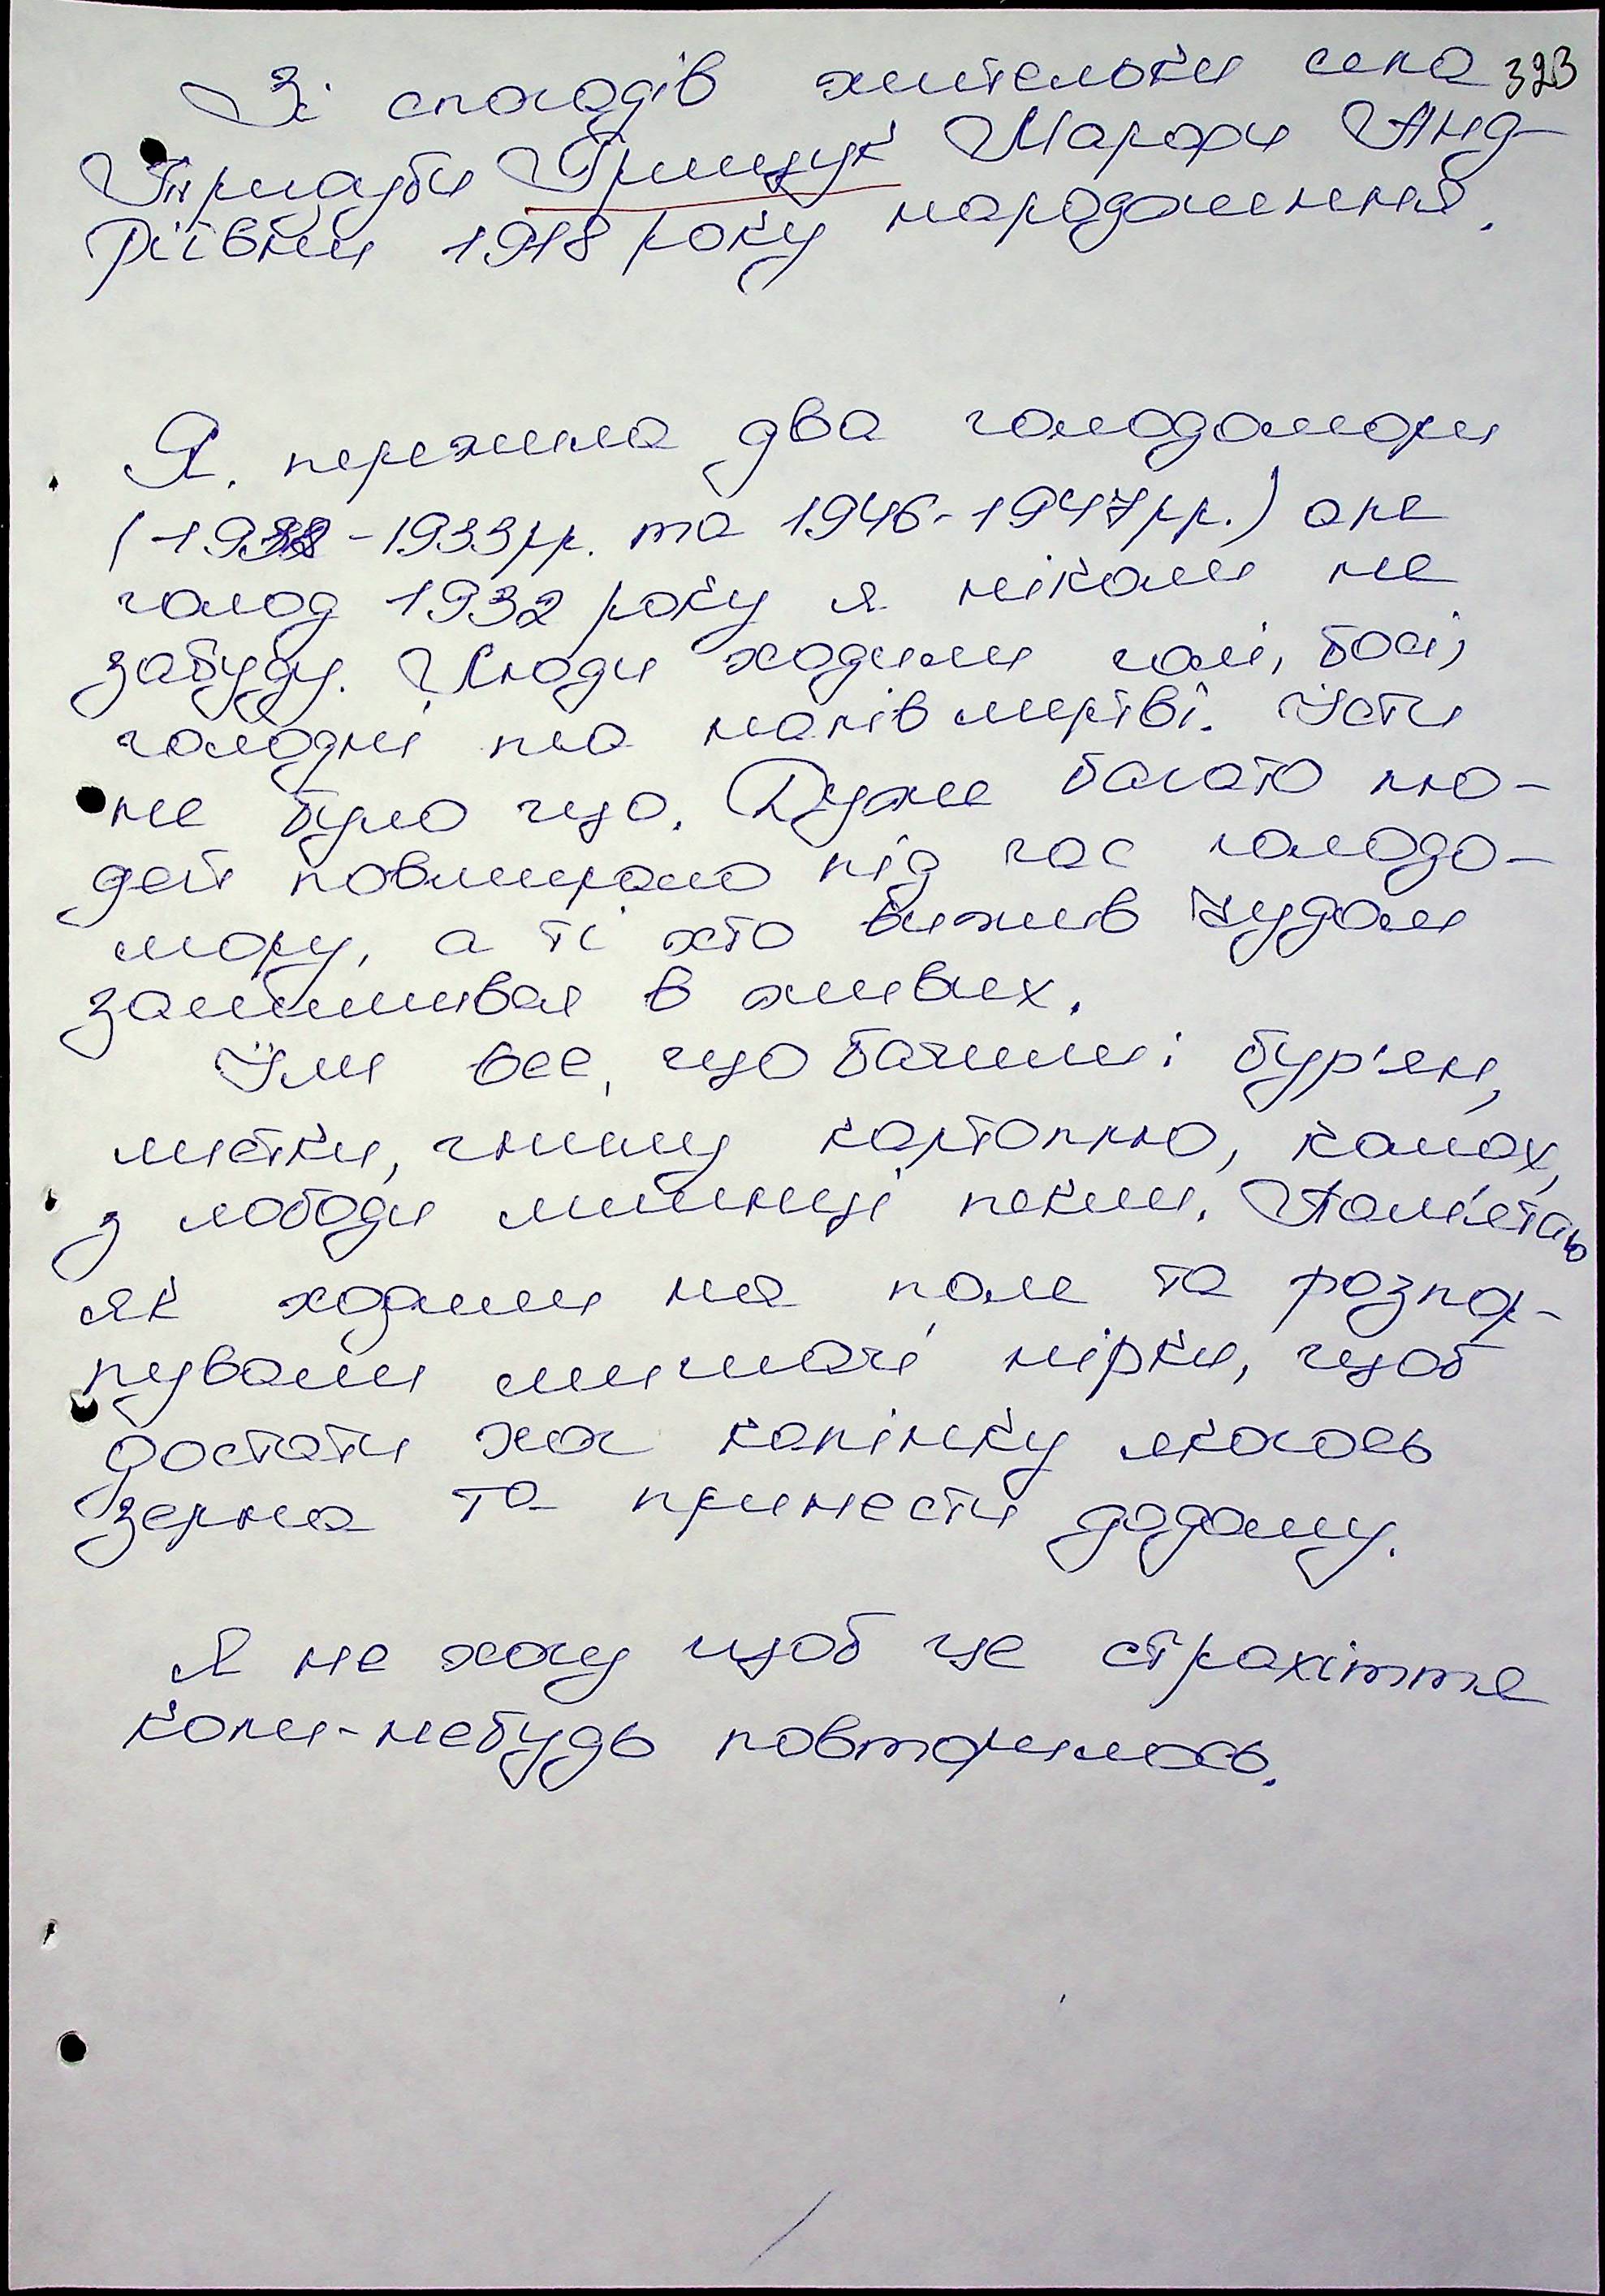 Зі спогадів жительки села 323
Грищук Марфи Анд-
ріївни 1918 року народження.
Я, пережила два голодомори
(1932-1933рр. та 1946-1947рр.) але
голод 1932 року я ніколи не
забуду. Люди ходили голі, босі,
голодні на напівмертві. Їсти
не було що. Дуже багато лю-
дей повмирало під час голодо-
мору, а ті хто вижив чудом
залишився в живих.
Їли все, що бачили: бур'ян,
листки, гнилу картоплю, калох,
з лободи млинці пекли. Пам'ятаю
як ходили на поле та розпор-
пували мишачі нірки, щоб
достати хоч капінку якогось
зерна та принести додому.
Я не хочу щоб це страхіття
коли-небудь повторилось.